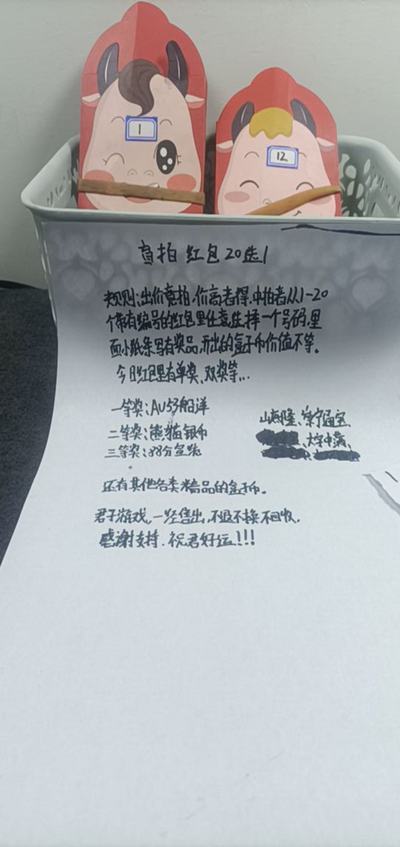 1
12
盲拍 红包20选1
规则:出价竞拍,价高者得,中拍者从1-20
个带有编号的红包里任意选择一个号码,里
面小纸条写有奖品,开出的盒子币价值不等。
今日红包里有单奖、双奖等...
一等奖:AU53船洋
二等奖:熊猫银币
三等奖:88分
咸丰
还有其他各类精品的盒子币。
君子游戏,一经售出,不退不换不回收。
感谢支持.祝君好运!!!